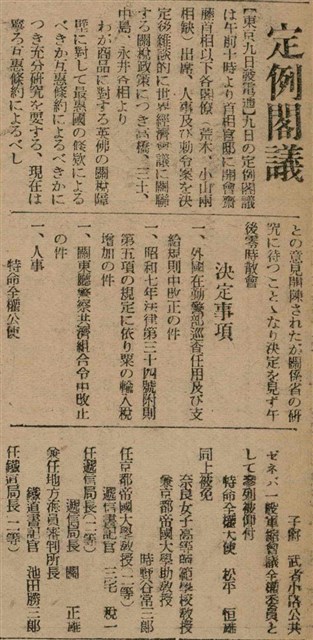 定例閣議
【東京九日發電通】九日の定例閣議
は午前十時より首相官邸に開會齋
藤首相以下各閣僚(荒木、小山兩
相缺)出席、人事及び勅令案を決
定後雜談的に世界經濟會議に關聯
する關稅政策につき高橋、三土、
中島、永井各相より
わが商品に對する英佛の關稅障
壁に對して最惠國の條款による
べきか互惠條約によるべきかに
つき充分研究を要する、現在は
寧ろ互惠條約によるべし
との意見開陳されたが關係省の研
究に待つことゝなり決定を見ず午
後零時散會
決定事項
一、外國在勤警部巡査任用及び支
給規則中改正の件
一、昭和七年法律第三十四號附則
第五項の規定に依り粟の輸入稅
增加の件
一、關東廳警察共濟組合令中改正
の件
一、人事
特命全權公使
子爵 武者小路公共
ゼネバ一般軍縮會議全權委員と
して參列被仰付
特命全權大使 松平 恒雄
同上被免
奈良女子高等師範學校教授
兼京都帝國大學助教授
時野谷常三郎
任京都帝國大學教授(二等)
遞信書記官 三宅 稅一
任遞信局長(二等)
遞信局長 關 正雄
兼任地方海員審判所長
鐵道書記官 池田勝三郎
任鐵道局長(二等)